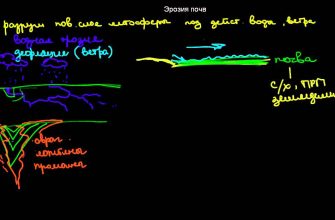 Эрозия почв
разруш пов слоя литосферы под дейст. воды, ветра
водная эрозия
дефляция (ветра)
почва
с/х, ПРП
земледелие
овраг
ложбина
промоина